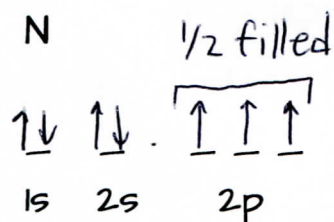 N
1/2 filled
↑↓ ↑↓ . ↑ ↑ ↑
1s 2s 2p